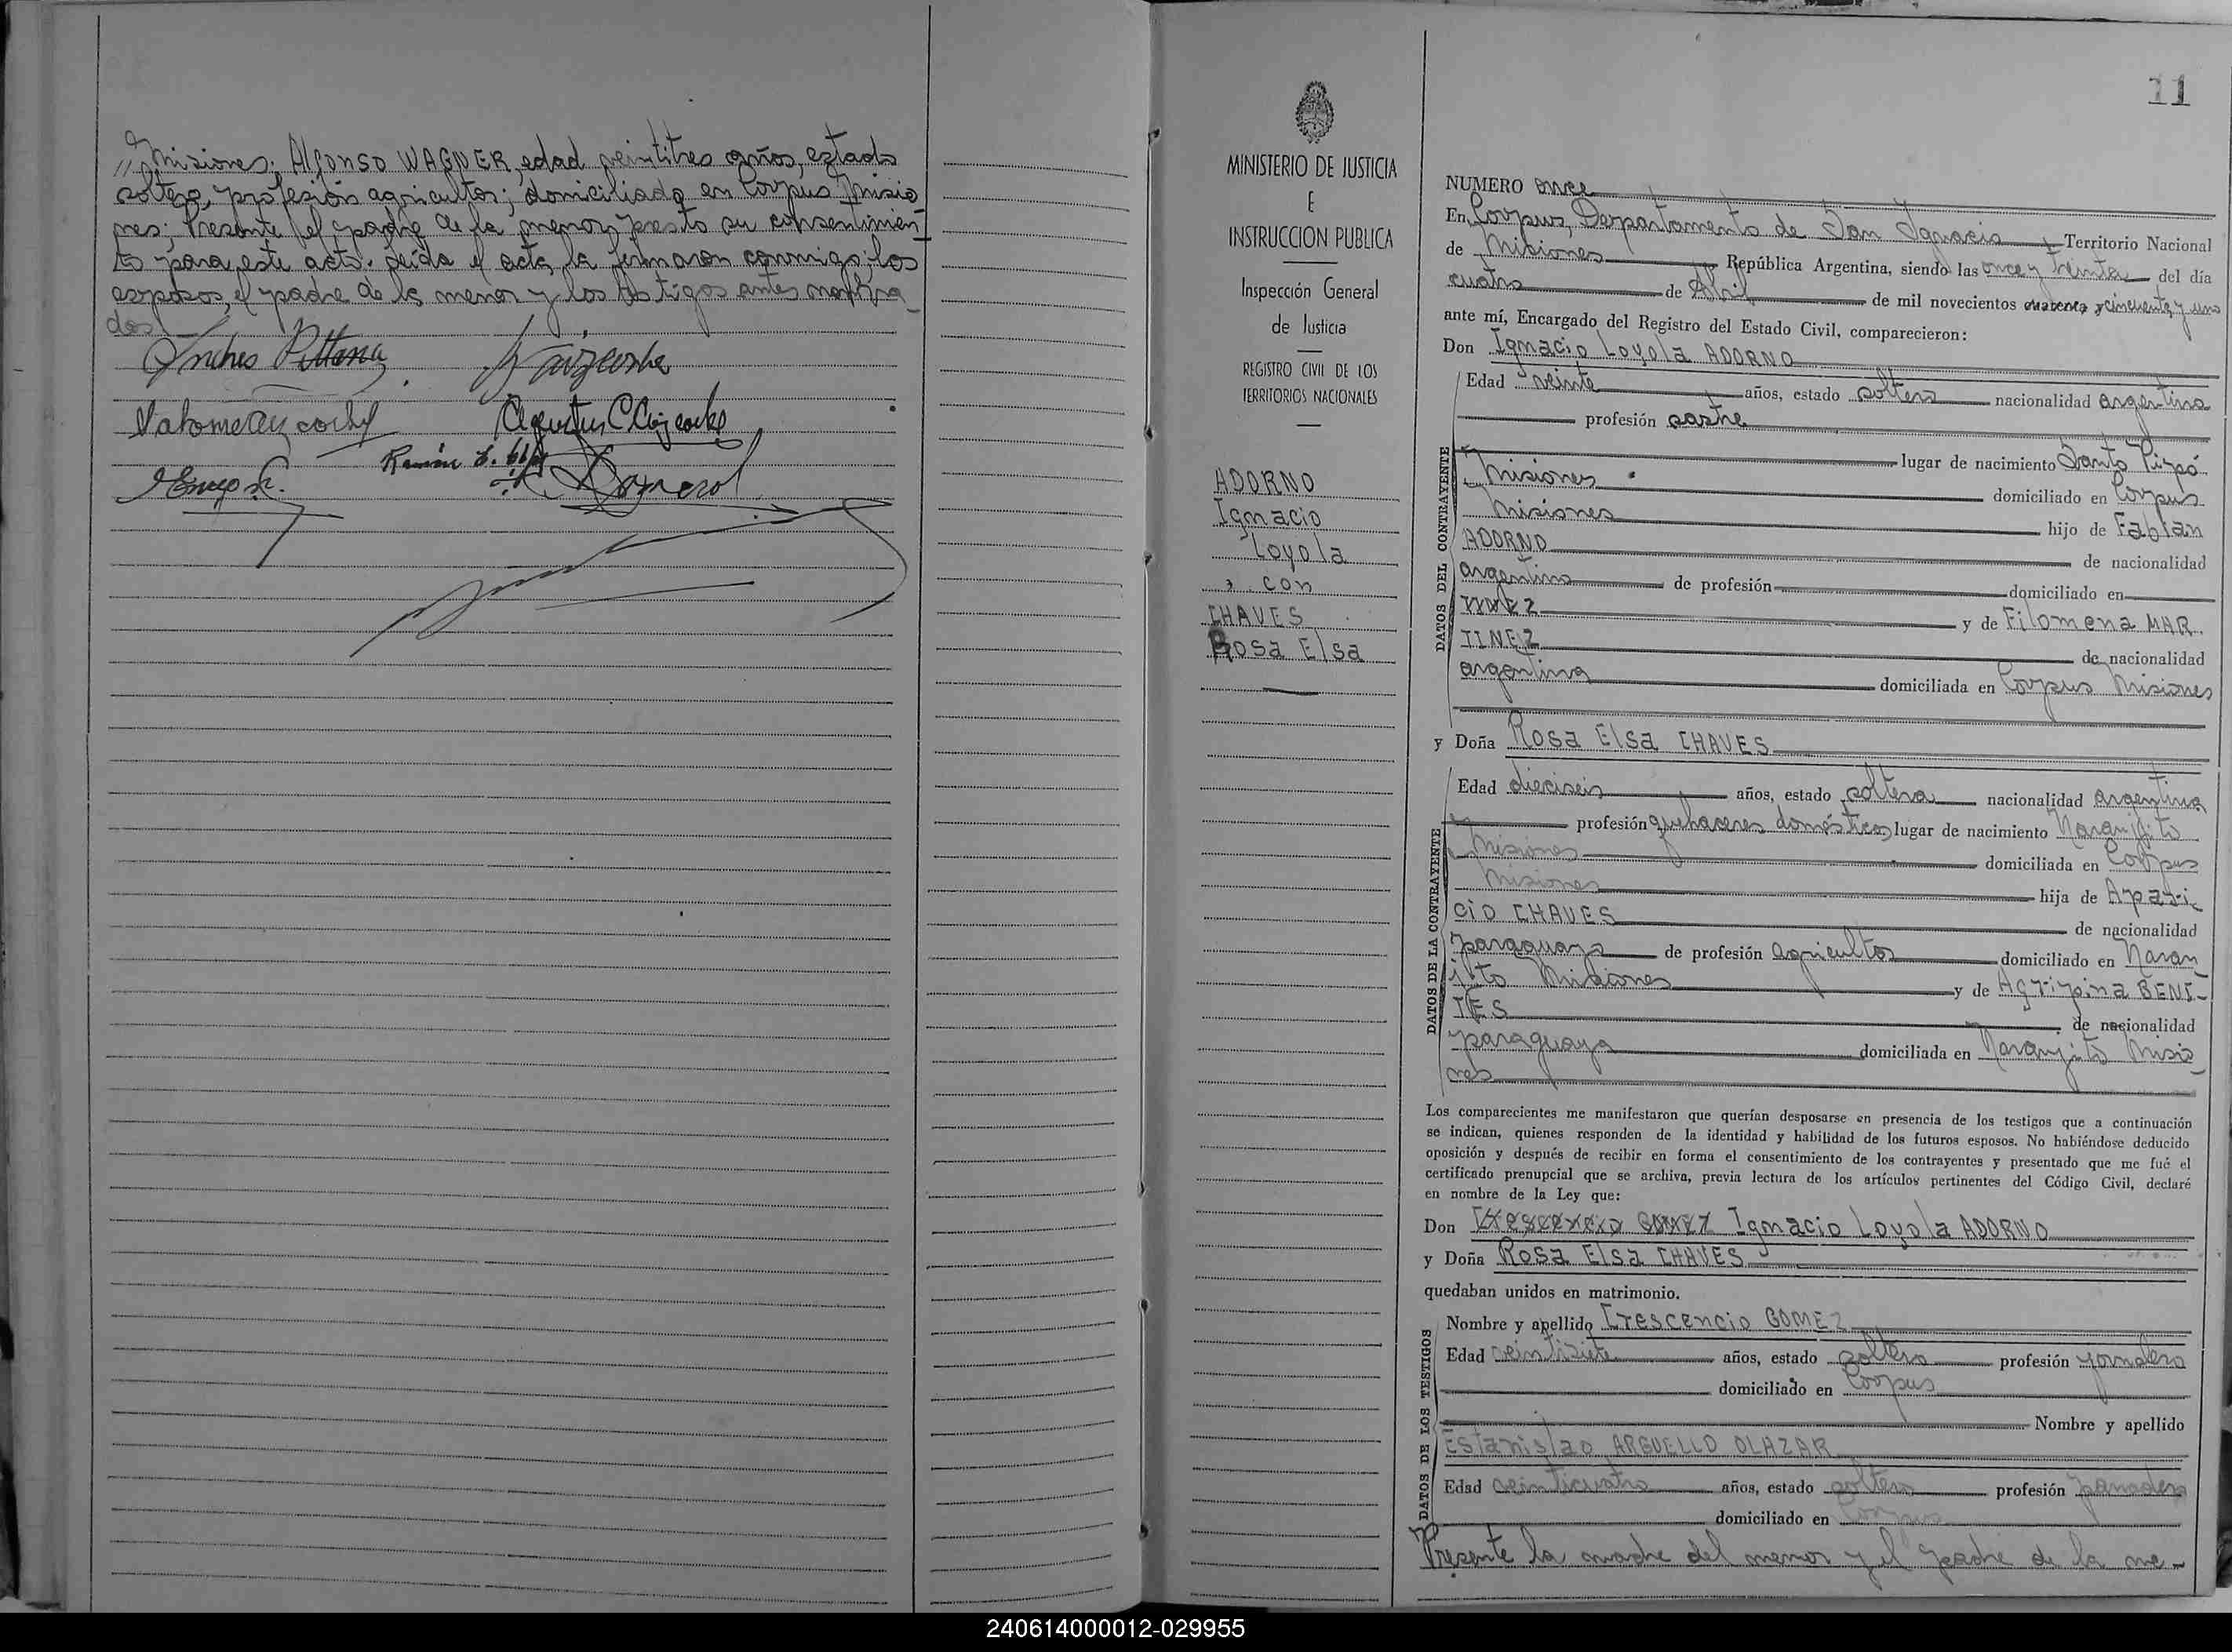 // Misiones; Alfonso WAGNER, edad veintitres años, estado
soltero, profesión agricultor; domiciliado en Corpus Misio
nes; Presente el padre de la menor, presto su consentimien-
to para este acto. Leida el acta, la firmaron conmigo, los
esposos, el padre de la menor y los testigos antes nombra-
dos.
11
MINISTERIO DE JUSTICIA
E
INSTRUCCION PUBLICA
Inspección General
de Justicia
REGISTRO CIVIL DE LOS
TERRITORIOS NACIONALES
ADORNO
Ignacio
Loyola
con
CHAVES
Rosa Elsa
NUMERO once
En Corpus, Departamento de San Ignacio, Territorio Nacional
de Misiones República Argentina, siendo las once y treinta del día
cuatro de Abril de mil novecientos cuarenta y cincuenta y uno
ante mí, Encargado del Registro del Estado Civil, comparecieron:
Don Ignacio Loyola ADORNO
Edad veinte años, estado soltero nacionalidad argentina
profesión sastre
lugar de nacimiento Santo Pipó
Misiones domiciliado en Corpus
Misiones hijo de Fabian
ADORNO de nacionalidad
argentino de profesión domiciliado en
y de Filomena MAR
TINEZ de nacionalidad
argentina domiciliada en Corpus Misiones
DATOS DEL CONTRAYENTE
y Doña Rosa Elsa CHAVES
Edad dieciseis años, estado soltera nacionalidad argentina
profesión quehaceres domésticos lugar de nacimiento Naranjito
Misiones domiciliada en Corpus
Misiones hija de Apari-
cio CHAVES de nacionalidad
paraguaya de profesión agricultor domiciliado en Naran-
jito Misiones y de Agripina BENI-
TES de nacionalidad
paraguaya domiciliada en Naranjito Misio-
nes
DATOS DE LA CONTRAYENTE
Los comparecientes me manifestaron que querían desposarse en presencia de los testigos que a continuación
se indican, quienes responden de la identidad y habilidad de los futuros esposos. No habiéndose deducido
oposición y después de recibir en forma el consentimiento de los contrayentes y presentado que me fué el
certificado prenupcial que se archiva, previa lectura de los artículos pertinentes del Código Civil, declaré
en nombre de la Ley que:
Don Crescencio GOMEZ Ignacio Loyola ADORNO
y Doña Rosa Elsa CHAVES
quedaban unidos en matrimonio.
Nombre y apellido Crescencio GOMEZ
Edad veintisiete años, estado soltero profesión jornalero
domiciliado en Corpus
Nombre y apellido
Estanislao ARGUELLO OLAZAR
Edad veinticuatro años, estado soltero profesión panadero
domiciliado en Corpus
DATOS DE LOS TESTIGOS
Presente la madre del menor y el padre de la me-
240614000012-029955